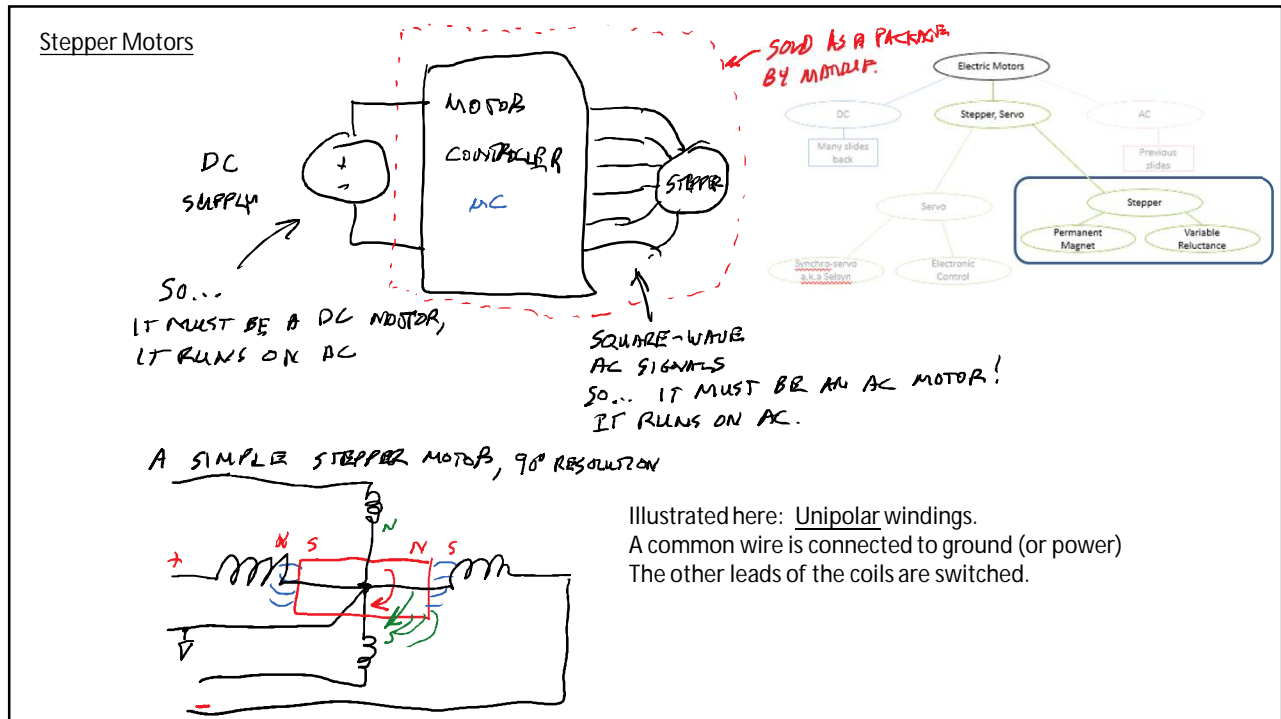 Stepper Motors
SOLD AS A PACKAGE
BY MANUF.
MOTOR
CONTROLLER
µC
DC
SUPPLY
+
-
STEPPER
SO...
IT MUST BE A DC MOTOR,
IT RUNS ON DC
SQUARE-WAVE
AC SIGNALS
SO... IT MUST BE AN AC MOTOR!
IT RUNS ON AC.
Electric Motors
DC
Stepper, Servo
AC
Many slides
back
Previous
slides
Servo
Stepper
Permanent
Magnet
Variable
Reluctance
Synchro-servo
a.k.a Selsyn
Electronic
Control
A SIMPLE STEPPER MOTOR, 90° RESOLUTION
N
+
N S
N S
S
-
Illustrated here: Unipolar windings.
A common wire is connected to ground (or power)
The other leads of the coils are switched.